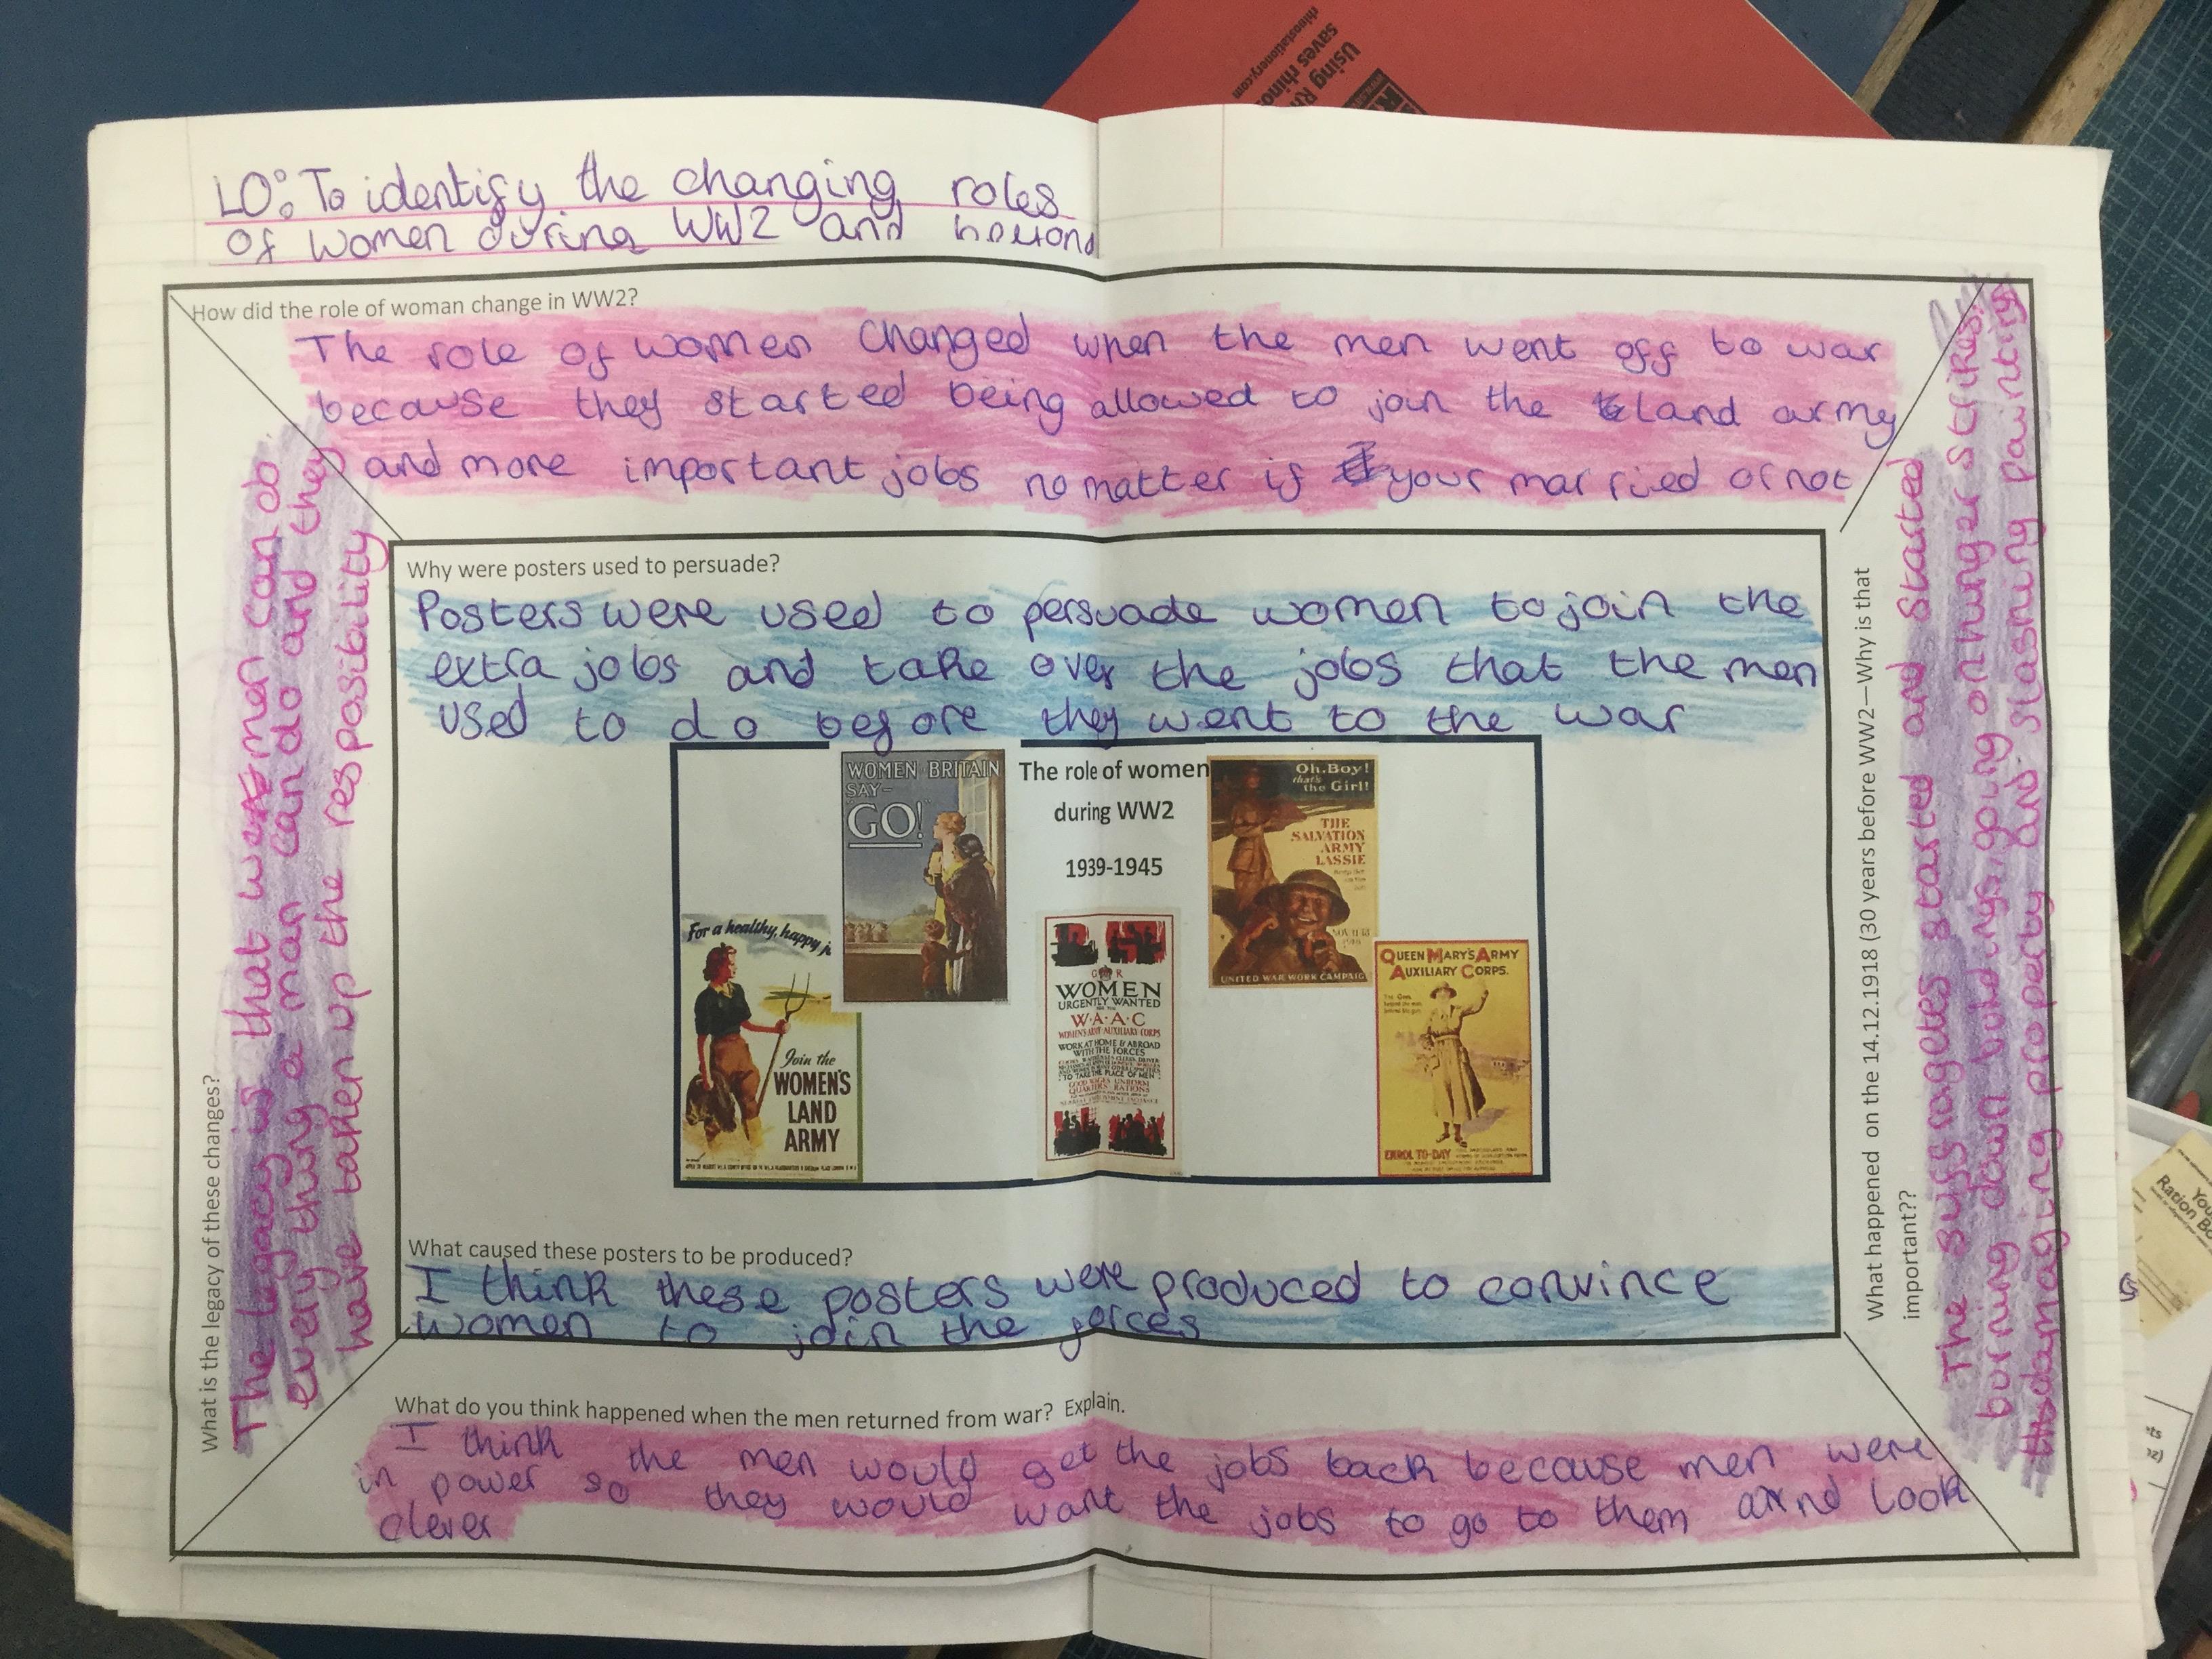 Using Rh
saves rhinos
rhinostationery.com
LO: To identify the changing roles
of women during WW2 and beyond
How did the role of woman change in WW2?
The role of women changed when the men went off to war
because they started being allowed to join the land army
and more important jobs no matter if your married or not
Why were posters used to persuade?
Posters were used to persuade women to join the
extra jobs and take over the jobs that the men
used to do before they went to the war
WOMEN BRITAIN
SAY-
"GO!"
The role of women
during WW2
1939-1945
Oh, Boy!
that's
the Girl!
THE
SALVATION
ARMY
LASSIE
UNITED WAR WORK CAMPAIG
For a healthy, happy j
Join the
WOMEN'S
LAND
ARMY
G R
WOMEN
URGENTLY WANTED
W·A·A·C
WOMEN'S ARMY AUXILIARY CORPS
WORK AT HOME & ABROAD
WITH THE FORCES
TO TAKE THE PLACE OF MEN
GOOD WAGES UNIFORM
QUARTERS RATIONS
QUEEN MARY'S ARMY
AUXILIARY CORPS.
ENROL TO-DAY
What caused these posters to be produced?
I think these posters were produced to convince
women to join the forces
What do you think happened when the men returned from war? Explain.
I think the men would get the jobs back because men were
in power so they would want the jobs to go to them and look
clever
What is the legacy of these changes?
The legacy is that women can do
every thing a man can do and they
have taken up the resposibility
What happened on the 14.12.1918 (30 years before WW2—Why is that
important??
The suffragetes started and started
burning down buildings, going on hunger strikes,
damaging property and slashing paintings
You
Ration Bo